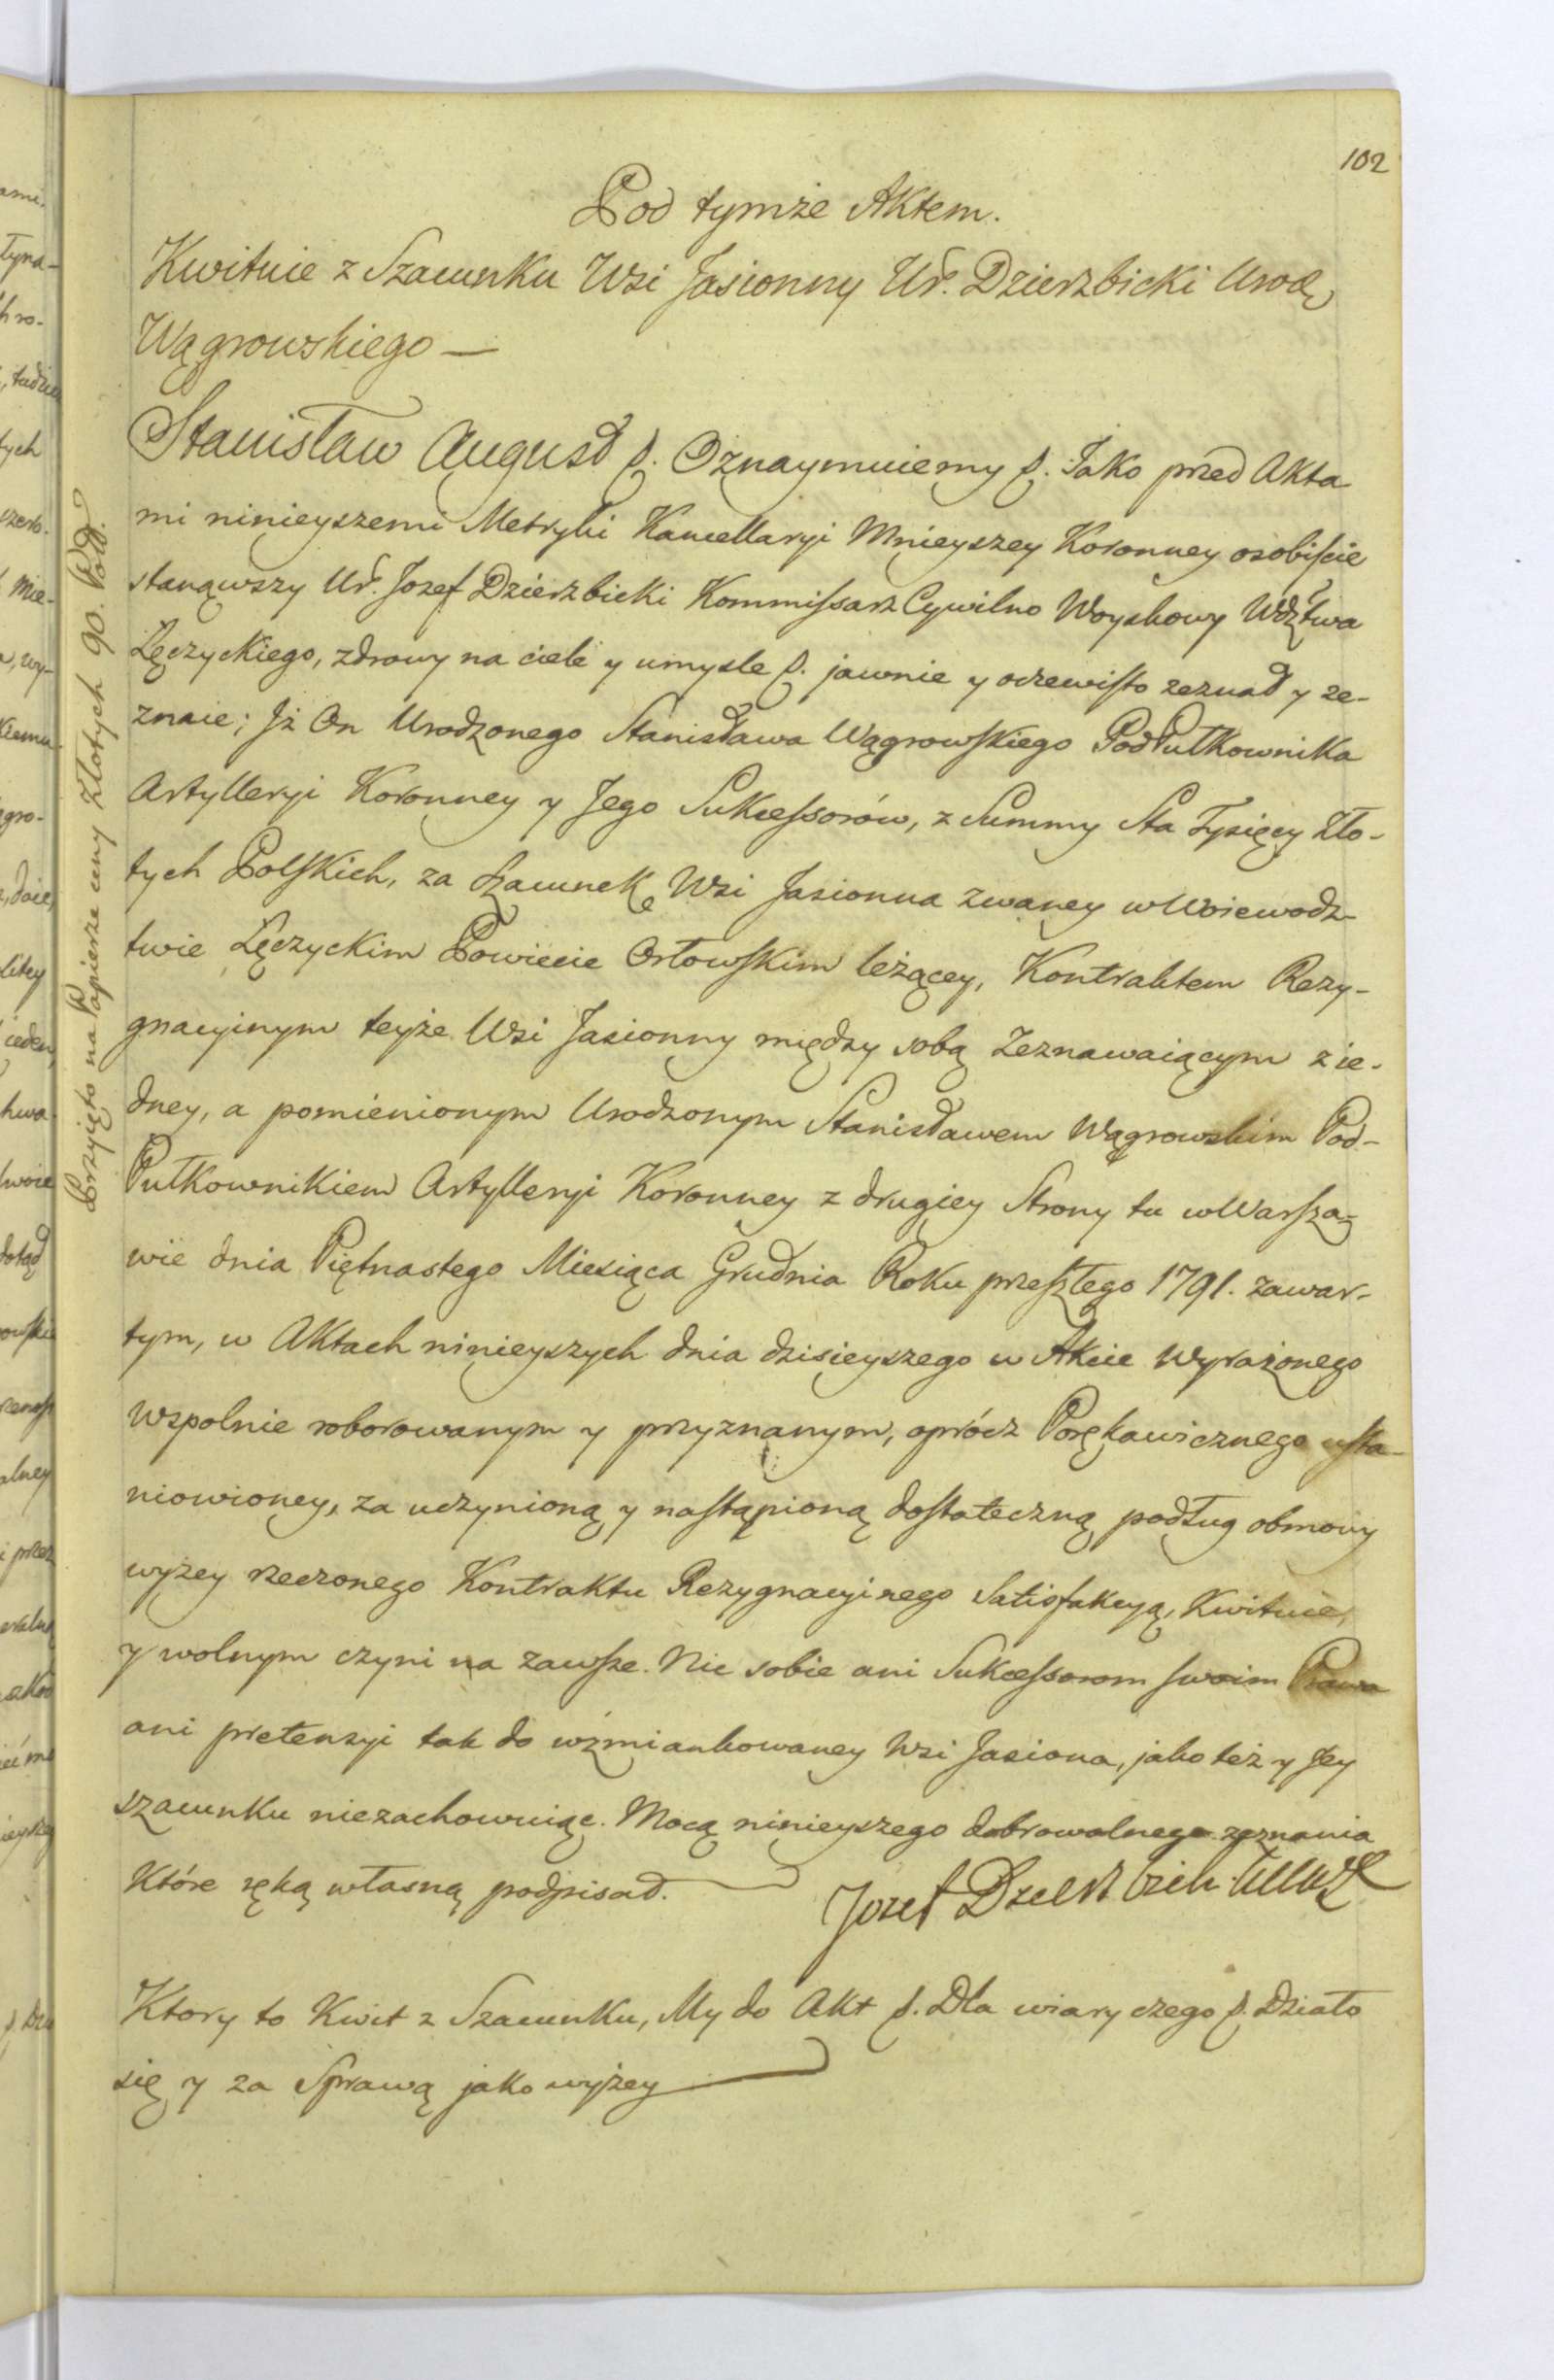 102
Pod tymże Aktem.
Kwituie z Szacunku Wsi Jasionny Ur. Dzierzbicki Urodz.
Wągrowskiego —
Stanisław August p. Oznaymuiemy p. Iako przed Akta
mi ninieyszemi Metryki Kancellaryi Mnieyszey Koronney osobiście
stanąwszy Ur. Jozef Dzierzbicki Kommissarz Cywilno Woyskowy Wdztwa
Łęczyckiego, zdrowy na ciele y umysle p. jawnie y oczewisto zeznał y ze-
znaie; Jż On Urodzonego Stanisława Wągrowskiego PodPułkownika
Artylleryi Koronney y Jego Sukcessorów, z Summy Sta Tysięcy Zło-
tych Polskich, za Szacunek Wsi Jasionna zwaney w Woiewodz-
twie Łęczyckim Powiecie Orłowskim leżącey, Kontraktem Rezy-
gnacyinym teyże Wsi Jasionny między sobą Zeznawaiącym z ie-
dney, a pomienionym Urodzonym Stanisławem Wągrowskim Pod-
Pułkownikiem Artylleryi Koronney z drugiey Strony tu w Warsza-
wie dnia Piętnastego Miesiąca Grudnia Roku przeszłego 1791. zawar-
tym, w Aktach ninieyszych dnia dzisieyszego w Akcie Wyrażonego
Wspolnie roborowanym y przyznanym, oprócz Porękawicznego usta-
niowioney, za uczynioną y nastąpioną dostateczną podług obmowy
wyżey rzeczonego Kontraktu Rezygnacyinego Satisfakcyą, Kwituie,
y wolnym czyni na zawsze. Nic sobie ani Sukcessorom swoim Prawa
ani pretensyi tak do wzmiankowaney Wsi Jasiona, jako też y Jey
szacunku niezachowuiąc. Mocą ninieyszego dobrowolnego zeznania
Które ręką własną podpisał.
Jozef Dzierzbicki
Ktory to Kwit z Szacunku, My do Akt p. Dla wiary czego p. Działo
się y za Sprawą jako wyżey
Przyięto na Papierze ceny Złotych 90. Pols.